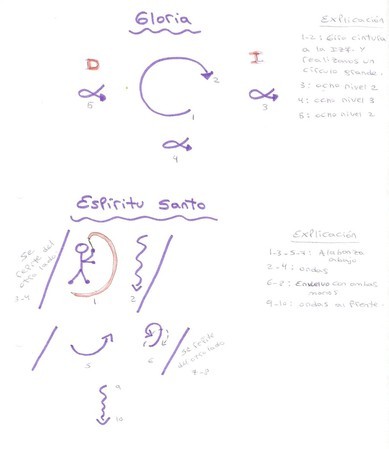 Gloria
Explicación
1-2: Giro cintura
a la IZQ. Y
realizamos un
círculo grande.
3: ocho nivel 2
4: ocho nivel 3
5: ocho nivel 2
D
I
1
2
3
4
5
Espíritu Santo
Se
repite del
otro lado
3-4
1
2
5
6
Se repite
del otro lado
7-8
9
10
Explicación
1-3-5-7: Alabanza
2-4: ondas
con ambas
manos
9-10: ondas al frente.